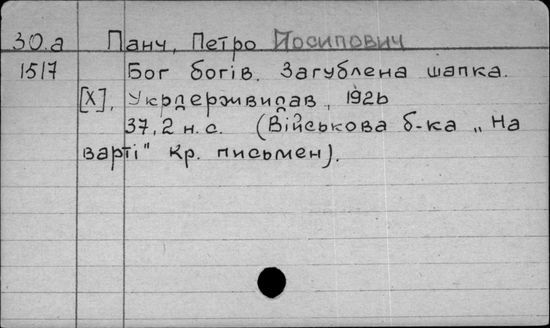 30.а Панч, Петро Йосипович
1517 Бог богів. Загублена шапка.
[Х], Укрдержвидав, 1926
37, 2 н.с. (Військова б-ка „На
варті" Кр. письмен).